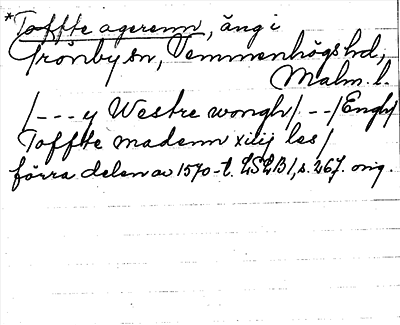 *Toffte agerenn, äng i
Grönby sn, Vemmenhögs hd,
Malm. l.
/--- y Westre wongh/. --/Engh/
Toffte madenn xiiij les/
förra delen av 1570-t. LSLB 1, s. 267. orig.